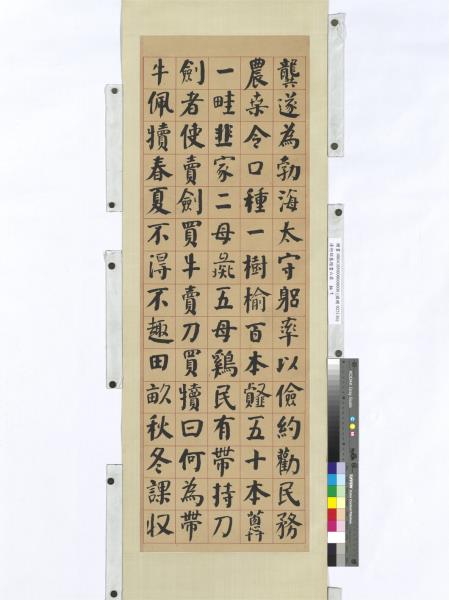 龔遂為勃海太守躬率以儉約勸民務
農桒令口種一樹榆百本䪥五十本蔥
一畦韭家二母彘五母鷄民有帶持刀
劍者使賣劍買牛賣刀買犢曰何為帶
牛佩犢春夏不得不趣田畝秋冬課収